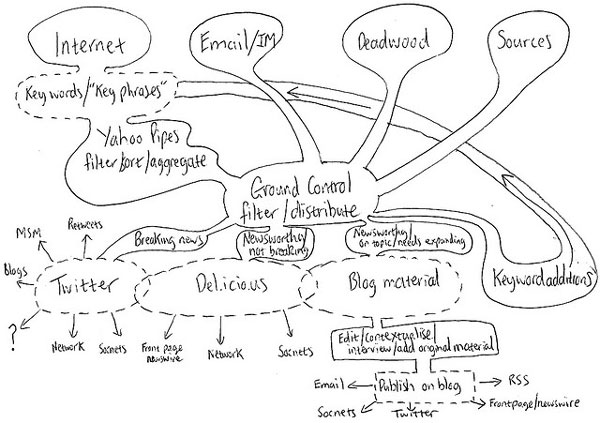 Internet
Email/IM
Deadwood
Sources
Keywords/"Key phrases"
Yahoo Pipes
filter/sort/aggregate
Ground Control
filter/distribute
Breaking news
Newsworthy
not breaking
Newsworthy
on topic/needs expanding
Keyword additions
MSM
Retweets
Blogs
Twitter
Del.icio.us
Blog material
?
Network
Socnets
Front page
newswire
Network
Socnets
Edit/contextualise
interview/add original material
Email
Publish on blog
RSS
Socnets
Twitter
Frontpage/newswire